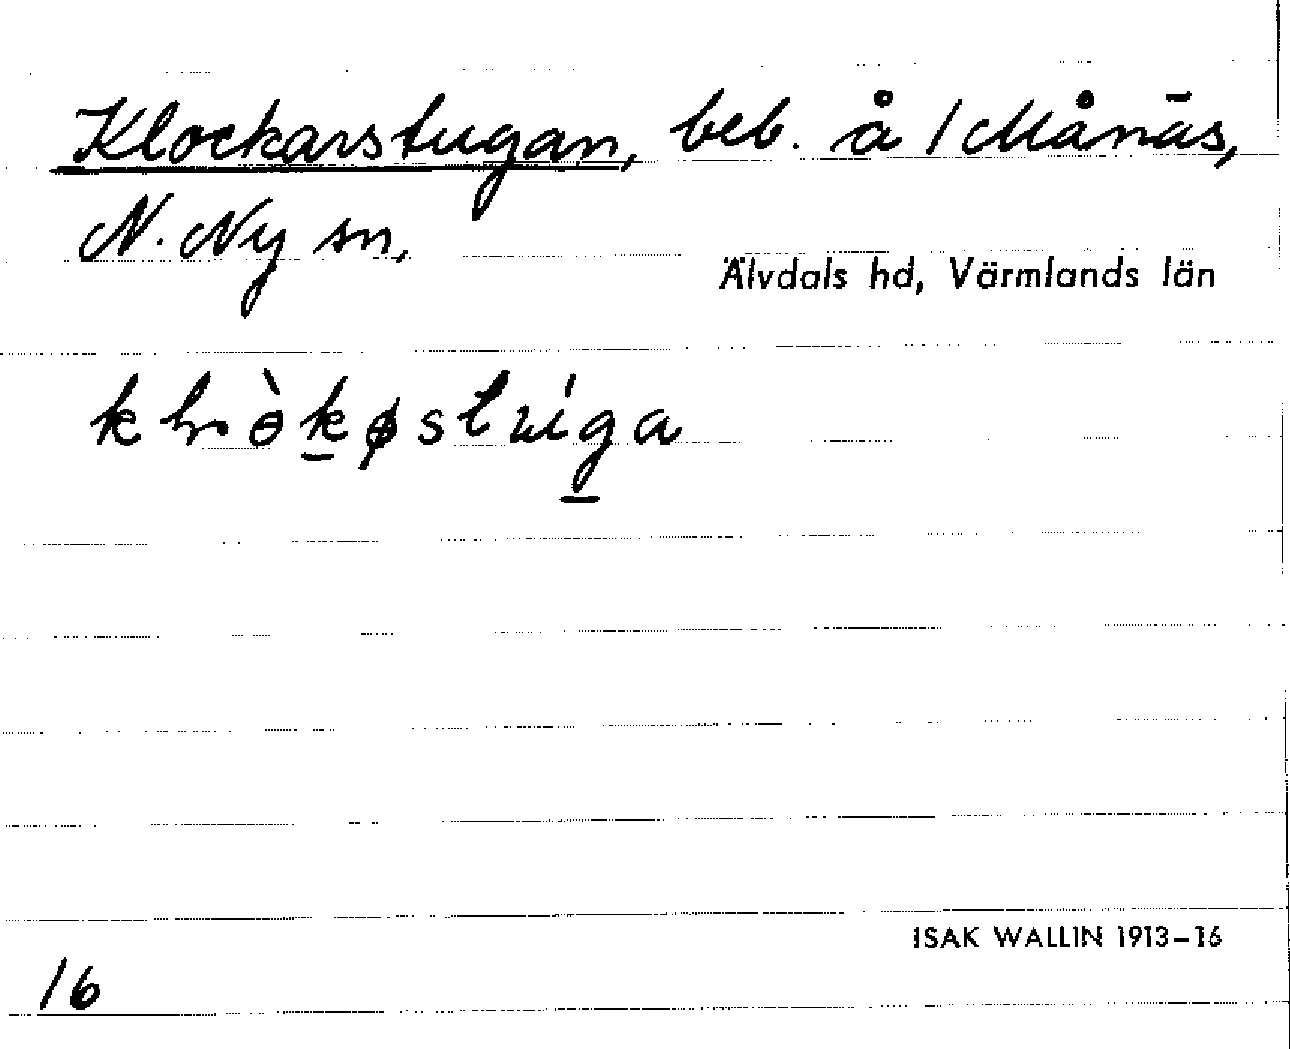 Klockarstugan, beb. å 1 Månäs,
N. Ny sn.
Älvdals hd, Värmlands län
ISAK WALLIN 1913–16
16